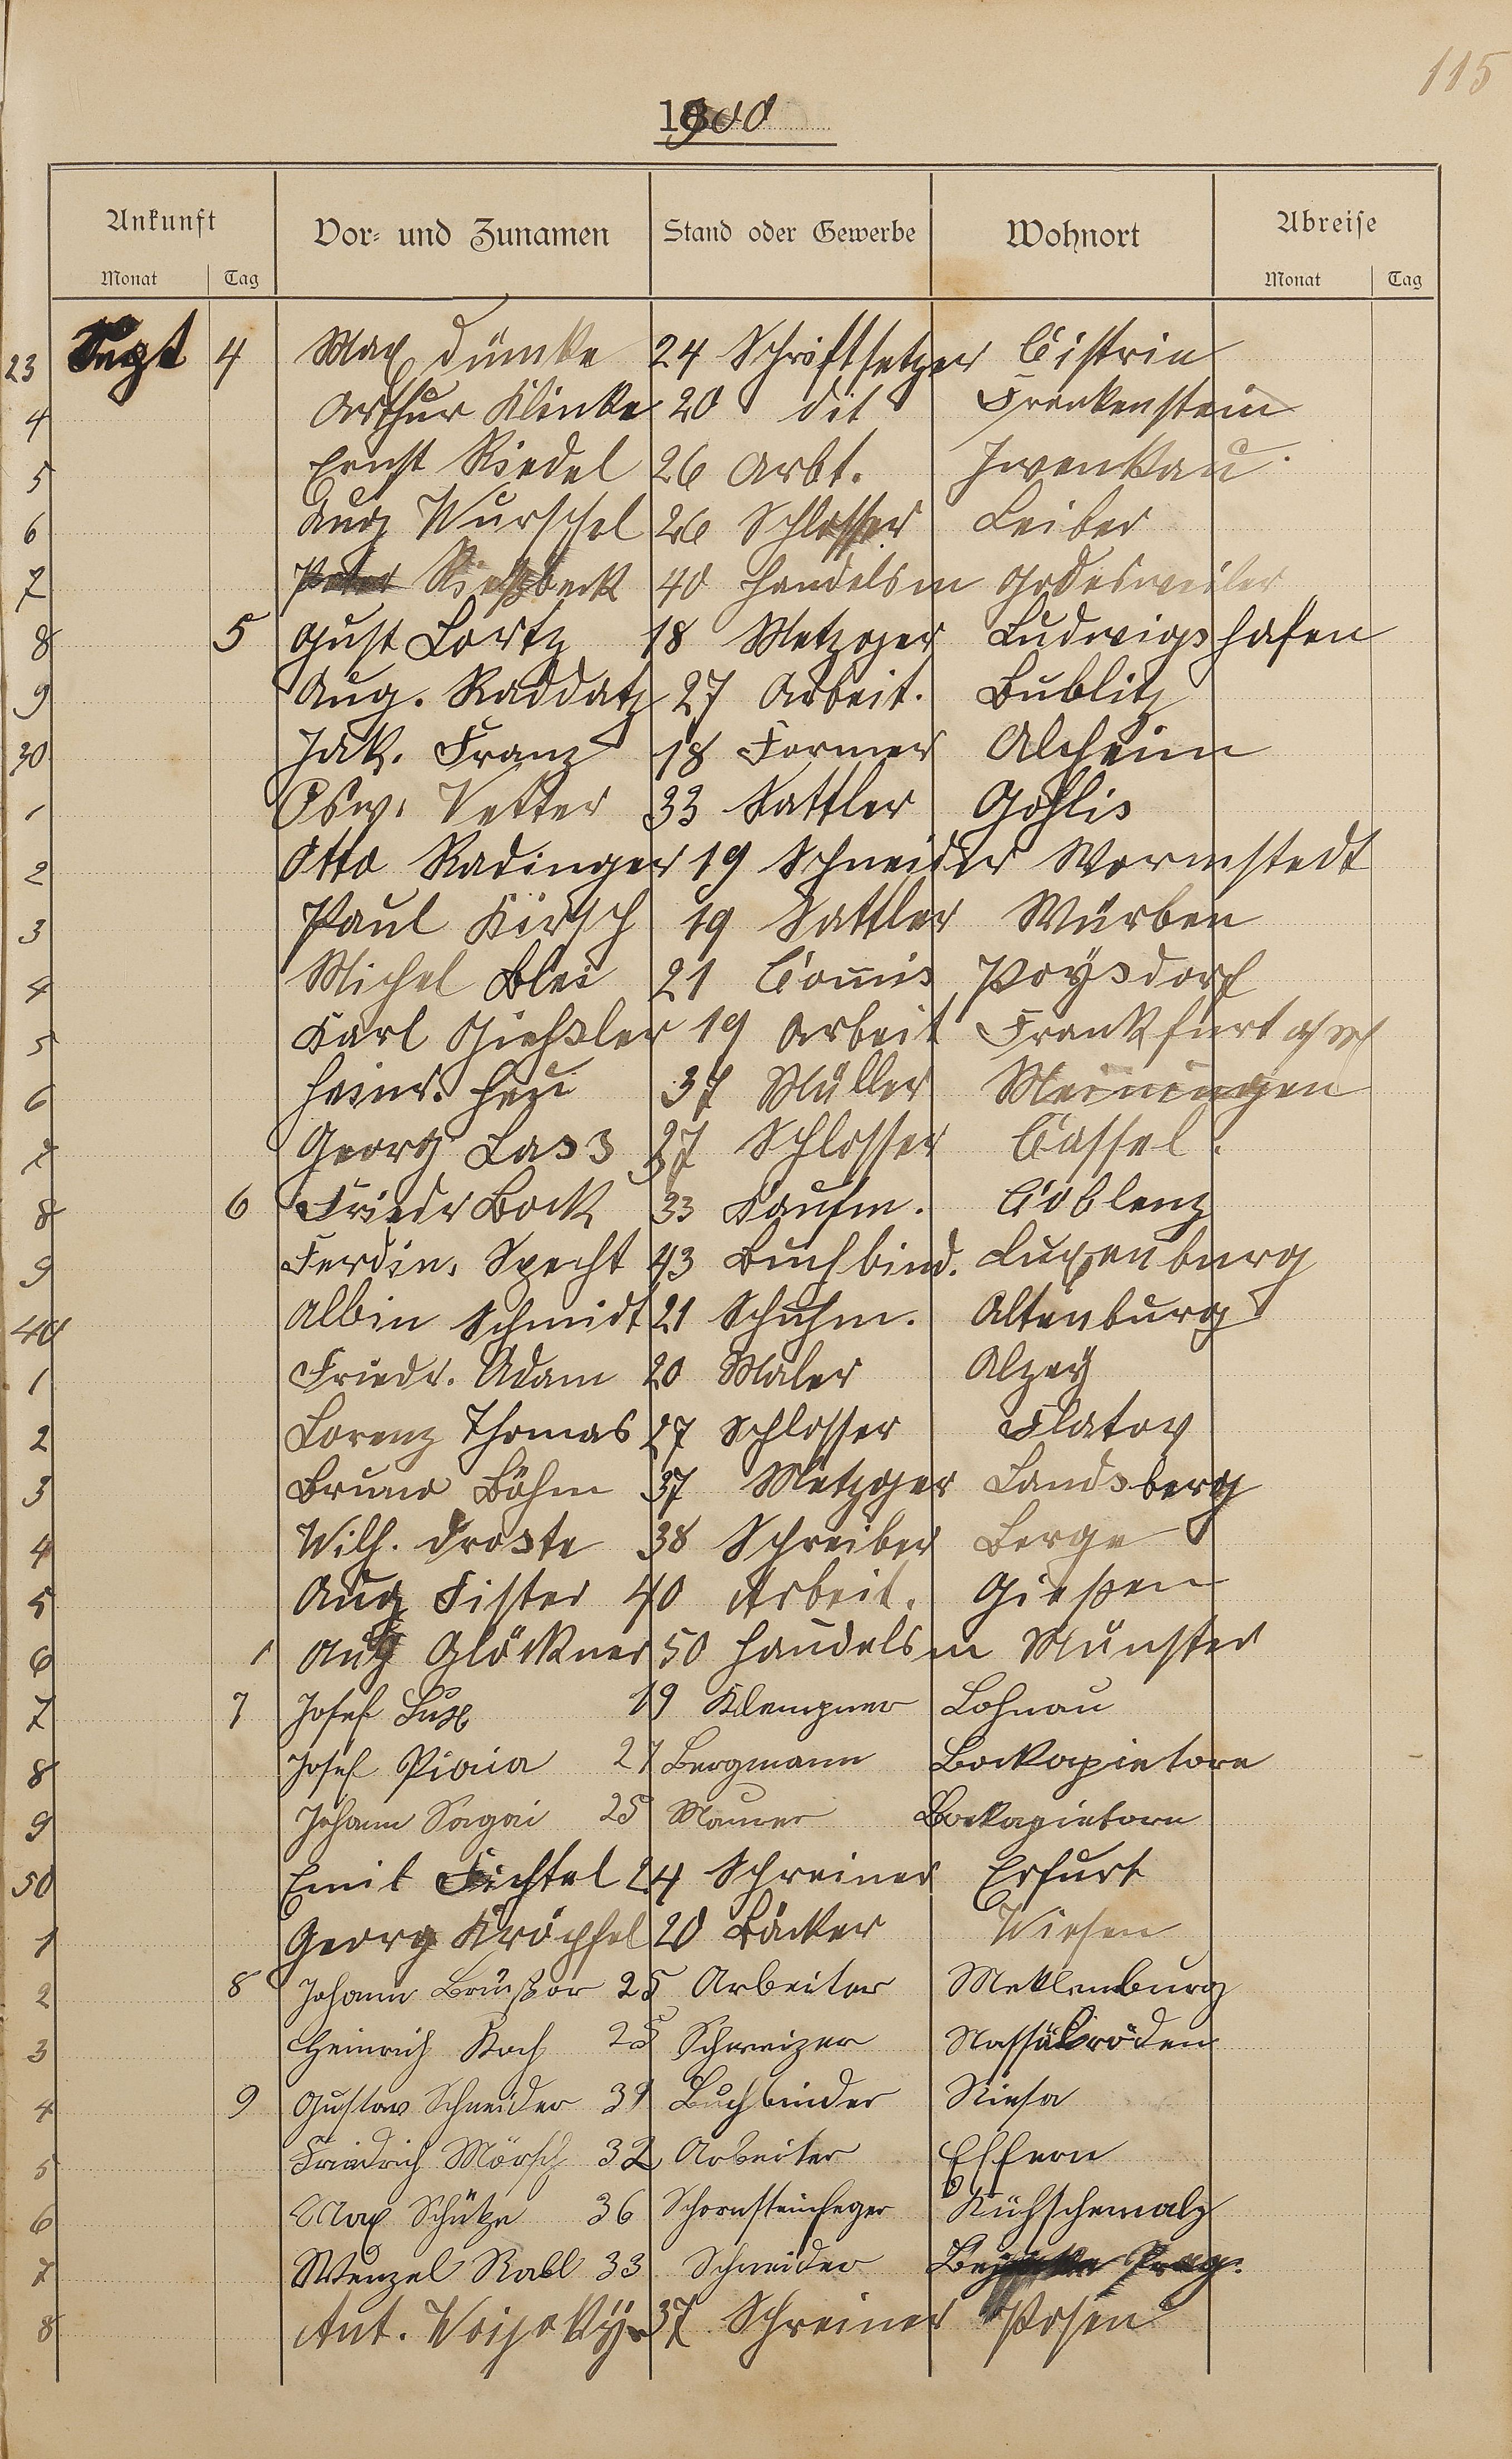 115
1900
Ankunft Vor- und Zunamen Stand oder Gewerbe Wohnort Abreise
Monat Tag Monat Tag
23 Sept 4 Max Dümke 24 Schriftsetzer Cistrin
4 Arthur Klinke 20 dit Frankenstein
5 Ernst Riedel 26 Arbt. Zwenkau.
6 Aug Wurschel 26 Schlosser Leiber
7 Peter Rietzbeck 40 Handelsm Godesweiler
8 5 Gust Lortz 18 Metzger Ludwigshafen
9 Aug. Raddatz 27 Arbeit. Bublitz
30 Jak. Franz 18 Former Alcheim
1 Osw. Vetter 33 Sattler Gohlis
2 Otto Radinger 19 Schneider Wormstedt
3 Paul Kirsch 19 Sattler Würben
4 Michel Blei 21 Com̅is Poysdorf
5 Karl Gießler 19 Arbeit Frankfurt a/M
6 Heinr. 37 Müller Meiningen
7 Georg Lass 27 Schlosser Cassel.
8 6 Friedr Bock 33 Kaufm. Coblenz
9 Ferdin. Specht 43 Buchbind. Luxenburg
40 Albin Schmidt 21 Schuhm. Altenburg
1 Friedr. Adam 20 Maler Alzey
2 Lorenz Thomas 27 Schlosser Flatow
3 Bruno Böhm 37 Metzger Landsberg
4 Wilh. Droste 38 Schreiber Berge
5 Aug Fister 40 Arbeit. Gießen
6 1 Aug Glöckner 50 Handelsm Münster
7 7 Josef Lux 19 Klempner Lohnau
8 Josef Piaia 27 Bergmann Bockapietore
9 Johann Sagai 25 Maurer Bockapietore
50 Emil Fichtel 24 Schreiner Erfurt
1 Georg Kröpfel 20 Bäcker Wiesen
2 8 Johann 25 Arbeiter Meklenburg
3 Heinrich Koch 25 Schweizer
4 9 Gustav Schneider 39 Buchbinder Riesa
5 Friedrich Mörsch 32 Arbeiter Effern
6 Max Schütze 36 Schornsteinfeger Kühschmalz
7 Wenzel Rabl 33 Schneider Prag.
8 Ant. 37 Schreiner Posen